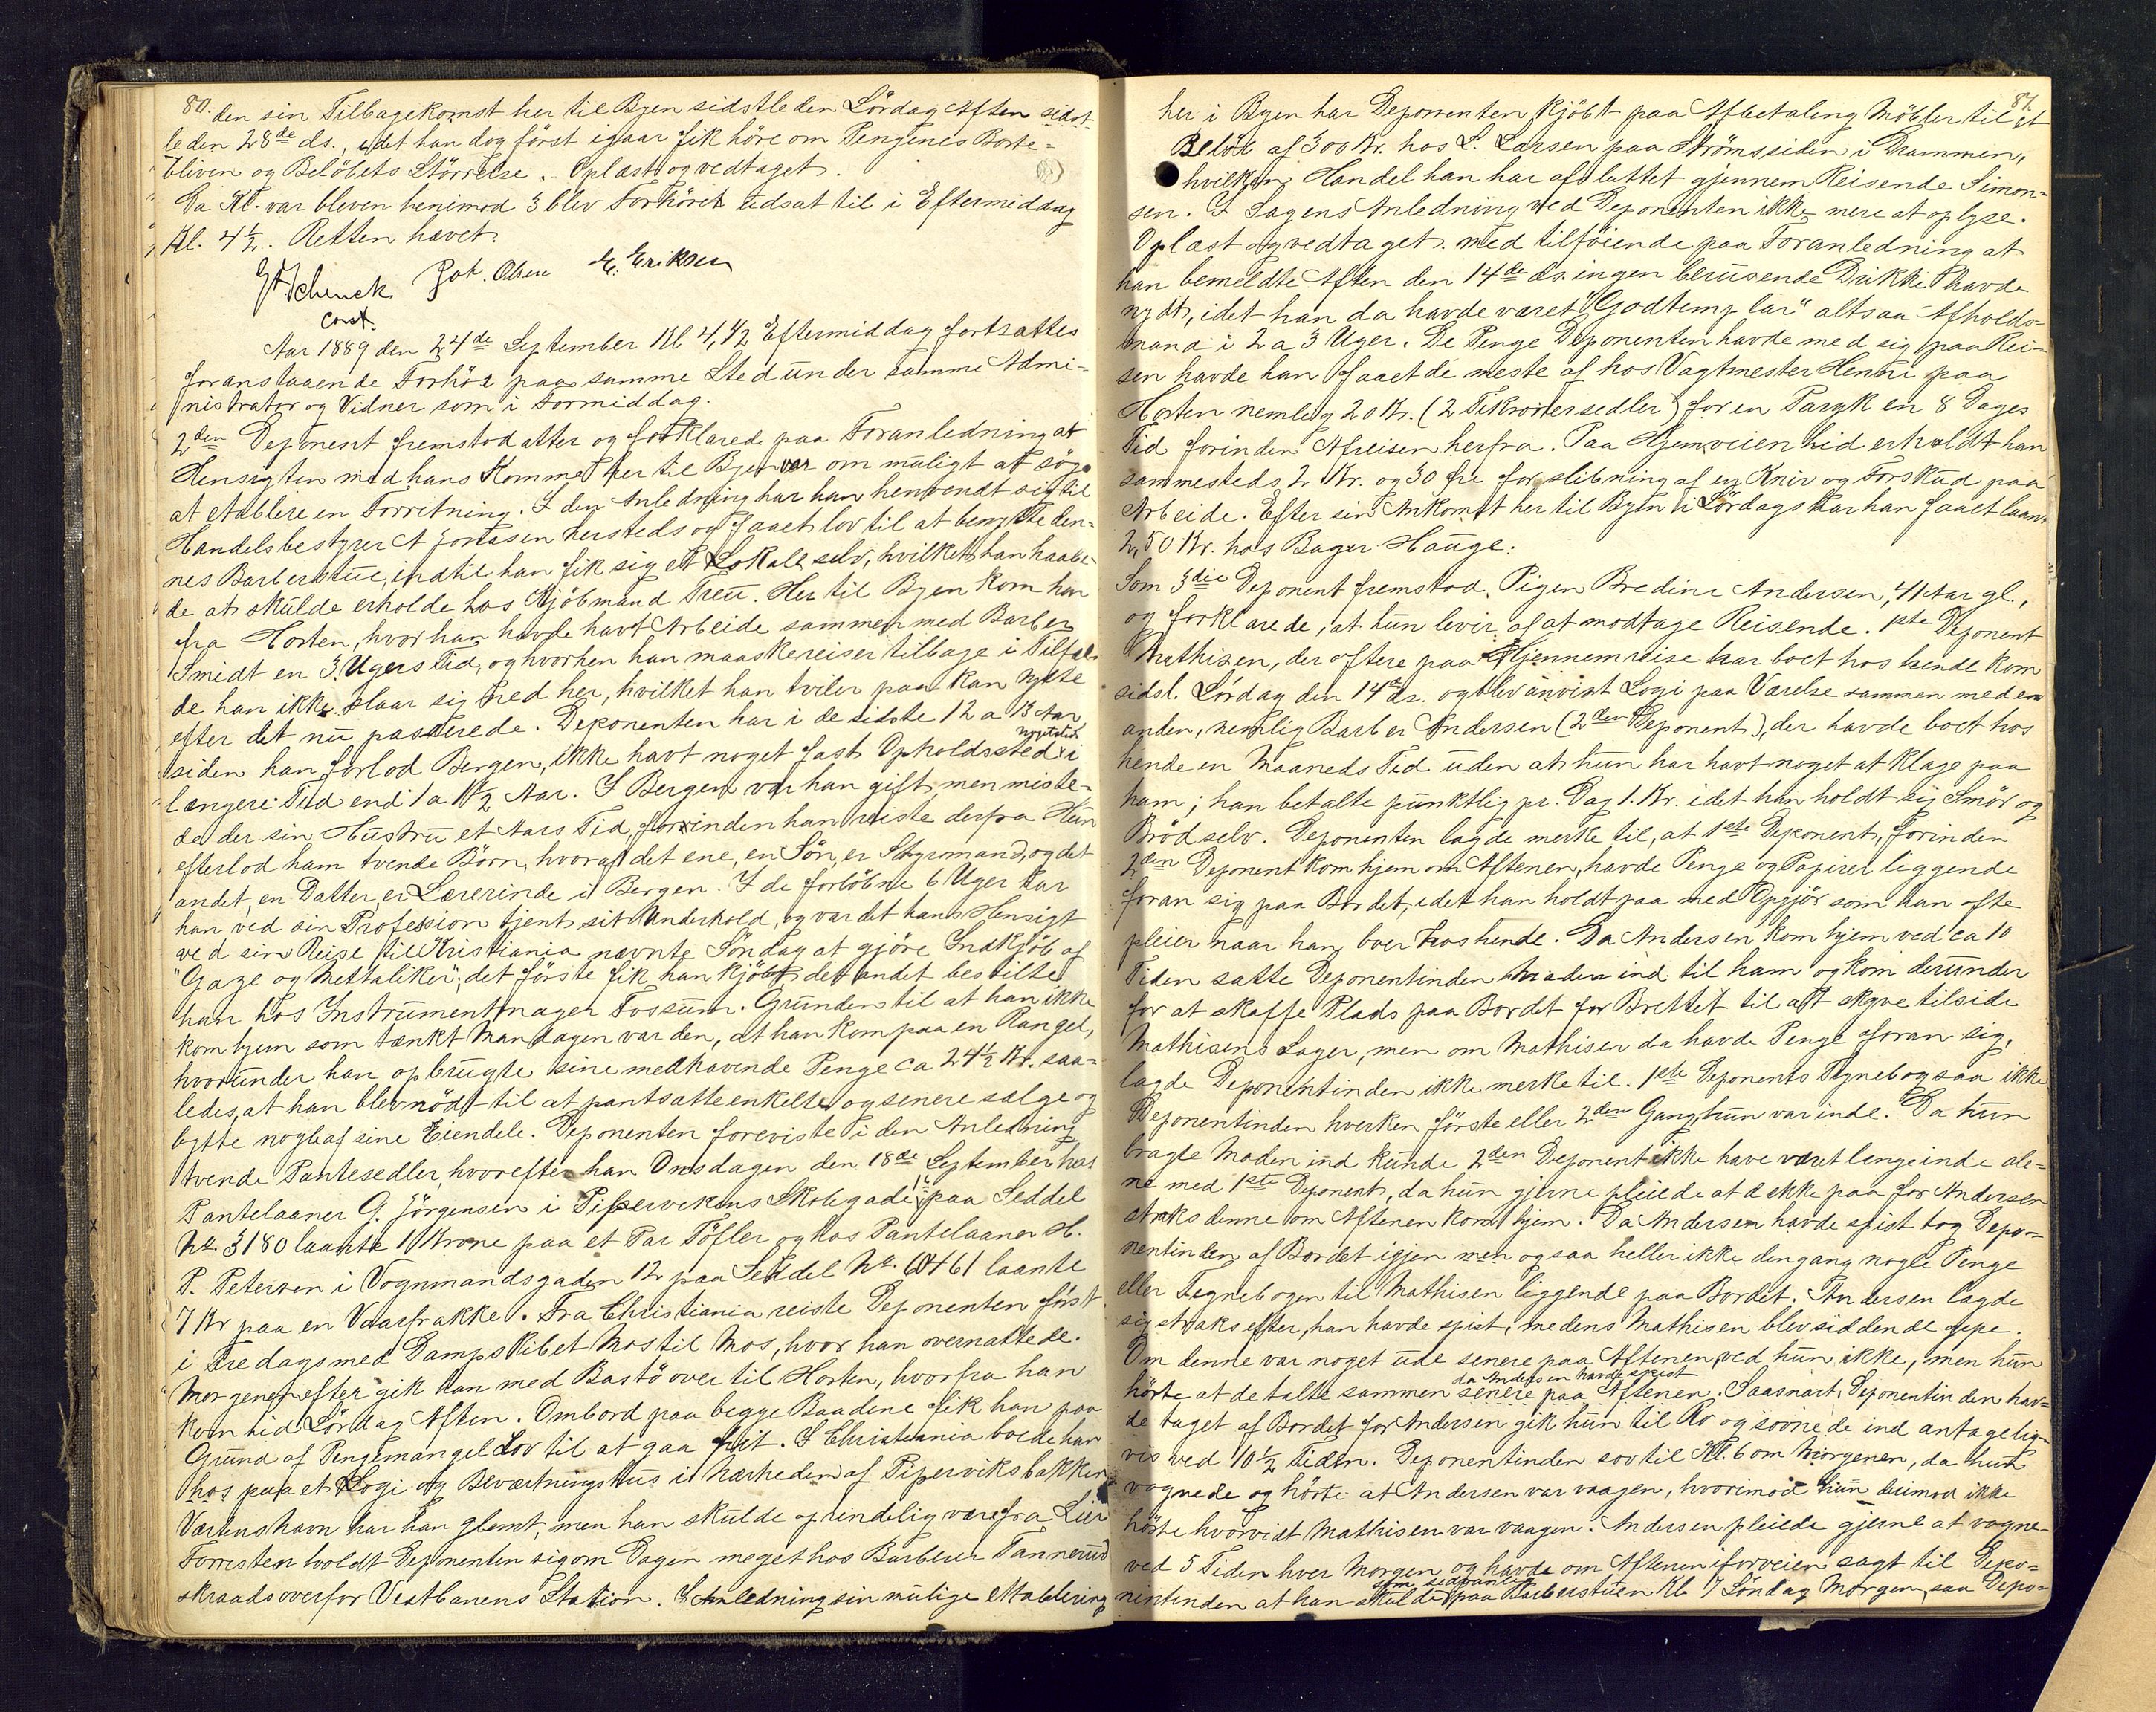 80.
den sin Tilbagekomst her til Byen sidstleden Lördag Aften sidst-
leden 28de ds., idet han dog först igaar fik höre om Pengenes Borte=
bliven og Belöbets Störrelse. Oplæst og vedtaget.
Da Kl. var bleven henimod 3 blev Forhöret udsat til i Eftermiddag
Kl. 4½. Retten hævet.
Schenck Joh. Olsen E. Eriksen
const.
Aar 1889 den 24de September Kl 4,½ Eftermiddag fortsattes
foranstaaende Forhör paa samme Sted under samme Admi=
nistrator og Vidner som i Formiddag.
2den Deponent fremstod atter og forklarede paa Foranledning at
Hensigten med hans Komme her til Byen var om muligt at söge
at etablere en Forretning. I den Anledning har han henvendt sig til
Handelsbestyrer A Jonasen hersteds og faaet lov til at benytte den-
nes Barberstue, indtil han fik sig et Lokale selv, hvilket han haabe-
de at skulde erholde hos Kjöbmand Treu. Her til Byen kom han
fra Horten, hvor han havde havt Arbeide sammen med Barber
Smidt en 3 Ugers Tid, og hvorhen han maaske reiser tilbage i Tilfæl-
de han ikke slaar sig ned her, hvilket han tviler paa kan nytte
efter det nu passerede. Deponenten har i de sidste 12 a 13 Aar
siden han forlod Bergen, ikke havt noget fast Opholdssted i
længere Tid end 1 a 1½ Aar. I Bergen var han gift, men miste-
de der sin Hustru et Aars Tid, forinden han reiste derfra. Hun
efterlod ham tvende Börn, hvoraf det ene, en Sön, er Styrmand, og det
andet, en Datter, er Lærerinde i Bergen. I de forlöbne 6 Uger har
han ved sin Profession tjent sit Underhold, og var det hans Hensigt
ved sin Reise til Kristiania nævnte Söndag at gjöre Indkjöb af
"Gaze og Mettaliker", det förste fik han kjöbt, det andet bestilte
han hos Instrumentmager Fossum. Grunden til at han ikke
kom hjem som tænkt Mandagen var den, at han kom paa en Rangel,
hvorunder han opbrugte sine medhavende Penge ca 24½ Kr. saa=
ledes, at han blev nödt til at pantsatte enkelte og senere sælge og
bytte nogle af sine Eiendele. Deponenten foreviste i den Anledning
tvende Pantesedler, hvorefter han Onsdagen den 18de September hos
Pantelaaner G. Jörgensen i Pipervikens Skolegade paa Seddel
No. 3180 laante 1 Krone paa et Par Töfler og hos Pantelaaner H.
P. Petersen i Vognmandsgaden 12 paa Seddel No. 60461 laante
7 Kr paa en Vaarfrakke. Fra Christiania reiste Deponenten först
i Fredags med Dampskibet Mos til Mos, hvor han overnattede.
Morgenen efter gik han med Bastö over til Horten, hvorfra han
kom hid Lördag Aften. Ombord paa begge Baadene fik han paa
Grund af Pengemangel Lov til at gaa frit. I Christiania boede han
hos paa et Logi og Beværtningshus i Nærheden af Piperviksbakken
Værtens Navn har han glemt, men han skulde oprindelig være fra Lier
Forresten holdt Deponenten sig om Dagen meget hos Barberer Tannerud
skraads overfor Vestbanens Station. I Anledning sin mulige etablering
81.
her i Byen har Deponenten kjöbt paa Afbetaling Möbler til et
Belöb af 300 Kr. hos L. Larsen paa Strömssiden i Drammen,
hvilken Handel han har afsluttet gjennem Reisende Simon=
sen. I Sagens Anledning ved Deponenten ikke mere at oplyse.
Oplæst og vedtaget. med tilföiende paa Foranledning at
han bemeldte Aften den 14de ds. ingen berusende Drikke havde
nydt, idet han da havde været "Godtemplar" altsaa Afholds=
mand i 2 a 3 Uger. De Penge Deponenten havde med sig paa Rei=
sen havde han faaet de meste af hos Vagtmester Henni paa
Horten nemlig 20 Kr. (2 Tikronersedler) for en Paryk en 8 Dages
Tid forinden Afreisen herfra. Paa Hjemveien hid erholdt han
sammesteds 2 Kr. og 30 Øre for slibning af en Kniv og Forskud paa
Arbeide. Efter sin Ankomst her til Byen i Lördags har han faaet laant
2,50 Kr. hos Bager Hauge.
Som 3die Deponent fremstod Pigen Bredine Andersen, 41 Aar gl.,
og forklarede, at hun lever af at modtage Reisende. 1ste Deponent
Mathisen, der oftere paa Gjennemreise har boet hos hende kom
sidstl. Lördag den 14de ds. og blev anvist Logi paa Værelse sammen med en
anden, nemlig Barber Andersen (2den Deponent), der havde boet hos
hende en Maaneds Tid uden at hun har havt noget at klage paa
ham; han betalte punktlig pr. Dag 1. Kr. idet han holdt sig Smör og
Bröd selv. Deponenten lagde merke til, at 1ste Deponent, forinden
2den Deponent kom hjem om Aftenen, havde Penge og Papirer liggende
foran sig paa Bordet, idet han holdt paa med Opgjör som han ofte
pleier naar han boer hos hende. Da Andersen kom hjem ved ca 10
Tiden satte Deponentinden Maden ind til ham og kom derunder
for at skaffe Plads paa Bordet for Brettet til at skyve tilside
Mathisens Sager, men om Mathisen da havde Penge foran sig,
lagde Deponentinden ikke merke til. 1ste Deponents Tegnebog saa ikke
Deponentinden hverken förste eller 2den Gang hun var inde. Da hun
bragte Maden ind kunde 2den Deponent ikke have været længe inde ale=
ne med 1ste Deponent, da hun gjerne pleiede at dække paa for Andersen
straks denne om Aftenen kom hjem. Da Andersen havde spist tog Depo=
nentinden af Bordet igjen men og saa heller ikke dengang nogle Penge
eller Tegnebogen til Mathisen liggende paa Bordet. Andersen lagde
sig straks efter, han havde spist, medens Mathisen blev siddende oppe.
Om denne var noget ude senere paa Aftenen, ved hun ikke, men hun
da Andersen havde spist
hörte at de talte sammen senere paa Aftenen. Saasnart Deponentinden hav=
de taget af Bordet for Andersen gik hun til Ro og sovnede ind antagelig=
vis ved 10½ Tiden. Deponentinden sov til Kl. 6 om Morgenen, da hun
vognede og hörte at Andersen var vaagen, hvorimod hun ikke
hörte hvorvidt Mathisen var vaagen. Andersen pleiede gjerne at vogne
ved 5 Tiden hver Morgen og havde om Aftenen iforveien sagt til Depo=
som sedvanlig
nentinden at han skulde paa Barberstuen Kl 7 Söndag Morgen, saa Depo=